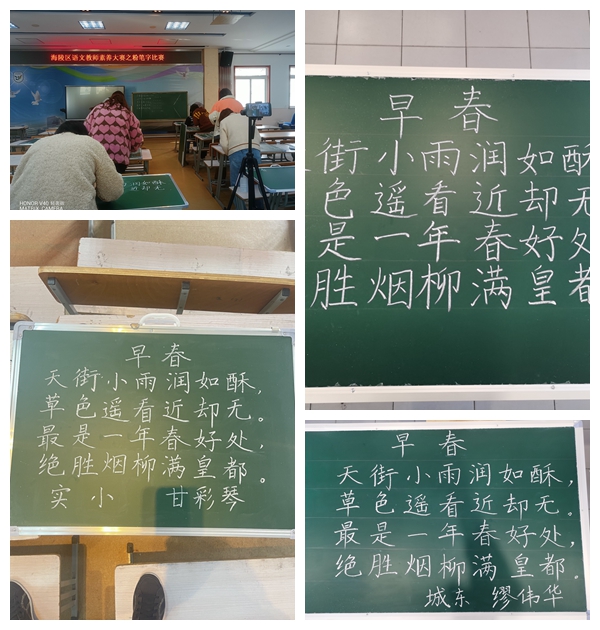 海陵区语文教师素养大赛之粉笔字比赛
润如酥
却无
HONOR V40
MATRIX CAMERA
早春
街小雨润如酥
色遥看近却无
是一年春好处
胜烟柳满皇都
早春
天街小雨润如酥,
草色遥看近却无。
最是一年春好处,
绝胜烟柳满皇都。
实小 甘彩琴
早春
天街小雨润如酥,
草色遥看近却无。
最是一年春好处,
绝胜烟柳满皇都.
城东 缪伟华